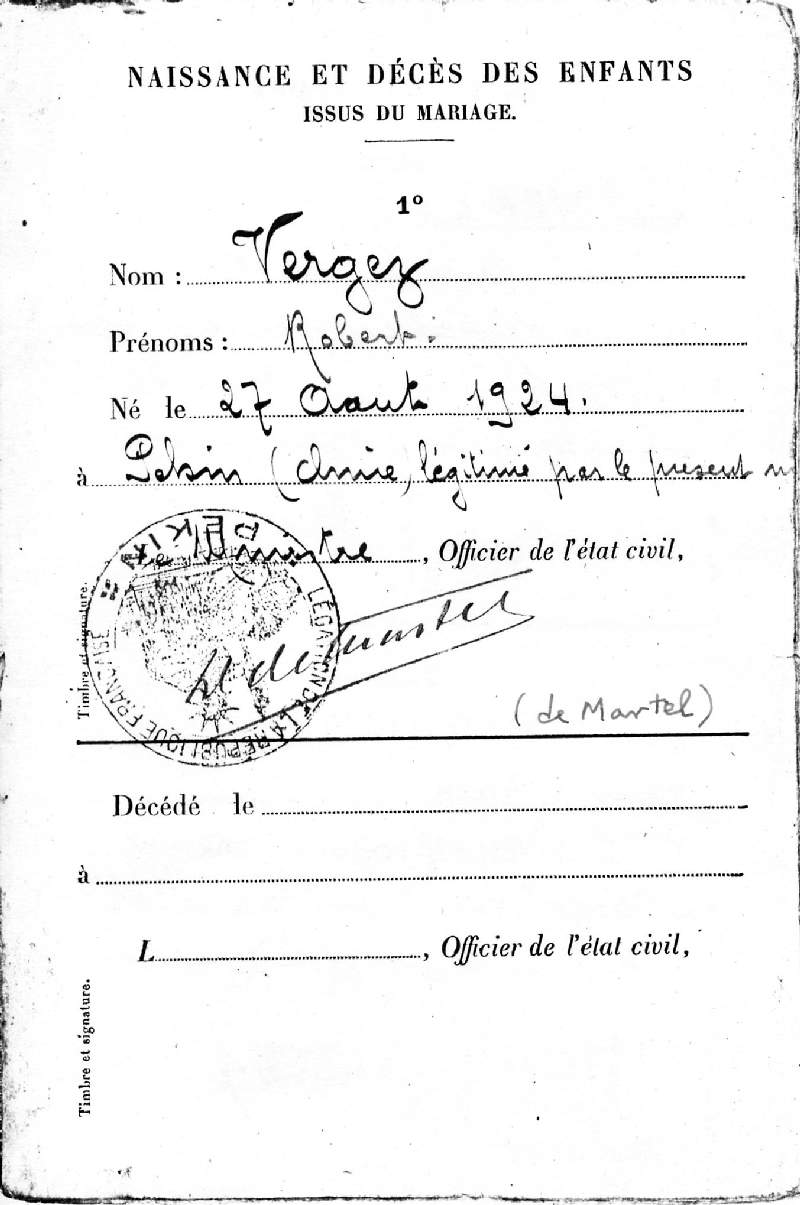 NAISSANCE ET DÉCÈS DES ENFANTS
ISSUS DU MARIAGE.
1º
Nom : Vergez
Prénoms : Robert.
Né le 27 Aout 1924.
à Pekin (Chine) légitimé par le present
Le Ministre, Officier de l'état civil,
Timbre et signature.
LÉGATION DE LA RÉPUBLIQUE FRANÇAISE
PEKIN
de Martel
(de Martel)
Décédé le
à
L, Officier de l'état civil,
Timbre et signature.